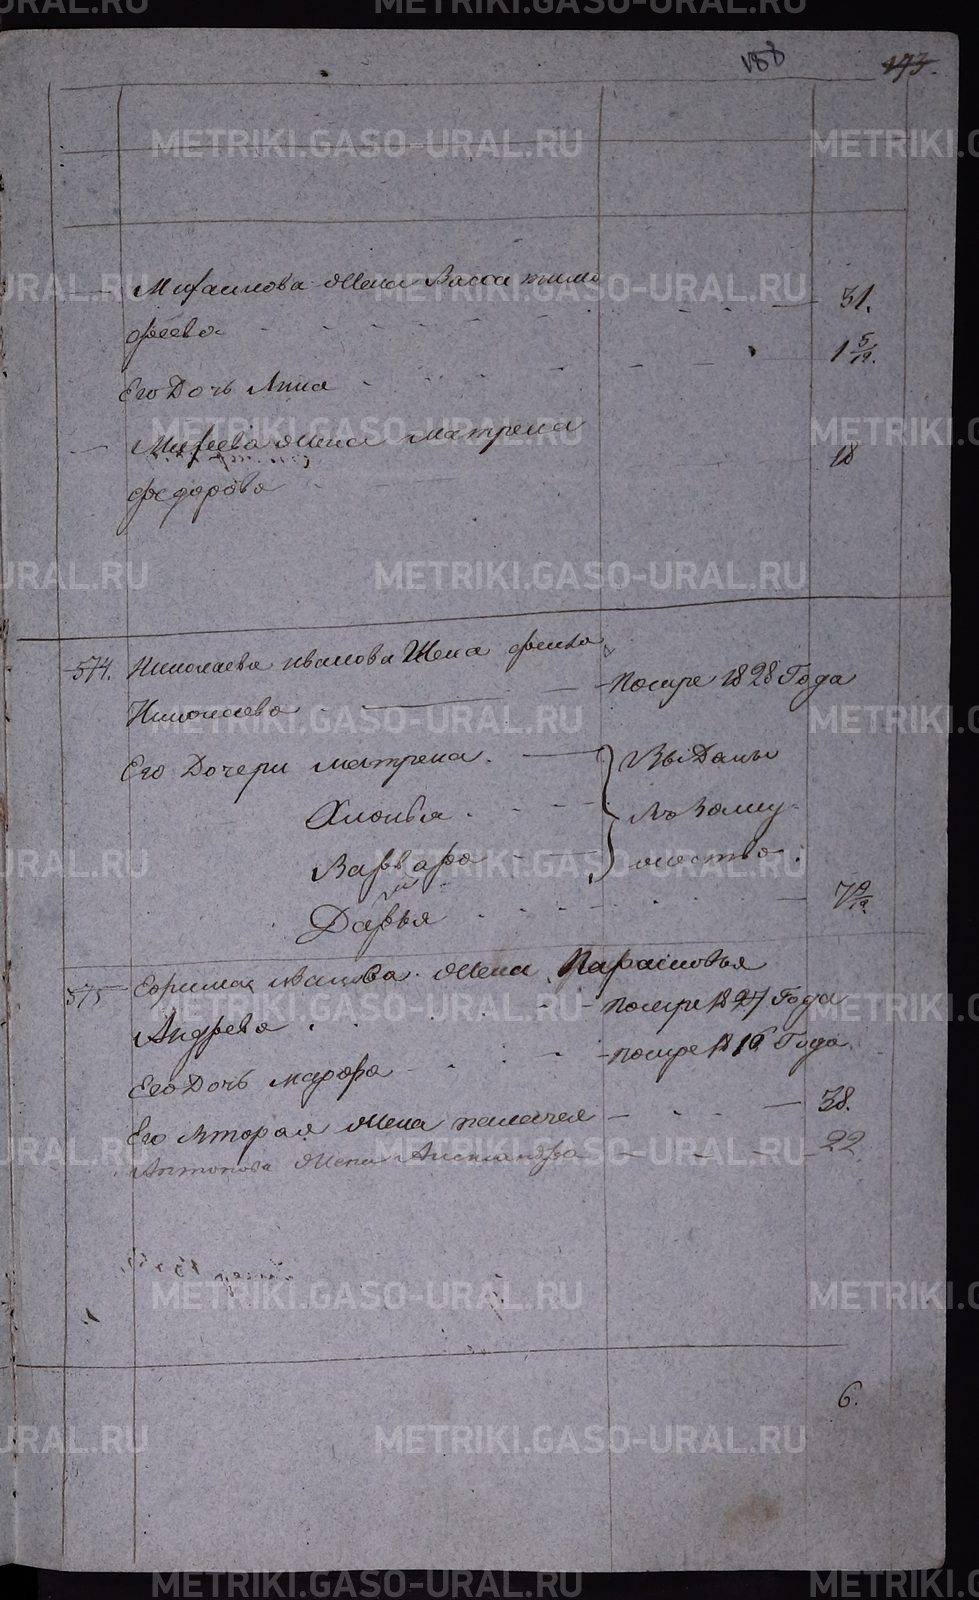 188 173.
Михаилова жена Васса тимо
феева 31.
Его Дочь Анна 1 5/12.
Михеева жена матрена
федорова 18
574. Николаева иванова Жена фекла
Николаева помре 1828 Года
Его Дочери матрена. Выданы
в Замуж
Варвара ество.
Дарья 7 9/12.
575 Ефрима иванова жена Парасковья
Андреева помре 1827 Года
Его Дочь марфа помре 1816 Года
Его вторая жена пелагея 38.
Антонова жена Александра 22.
6.
METRIKI.GASO-URAL.RU